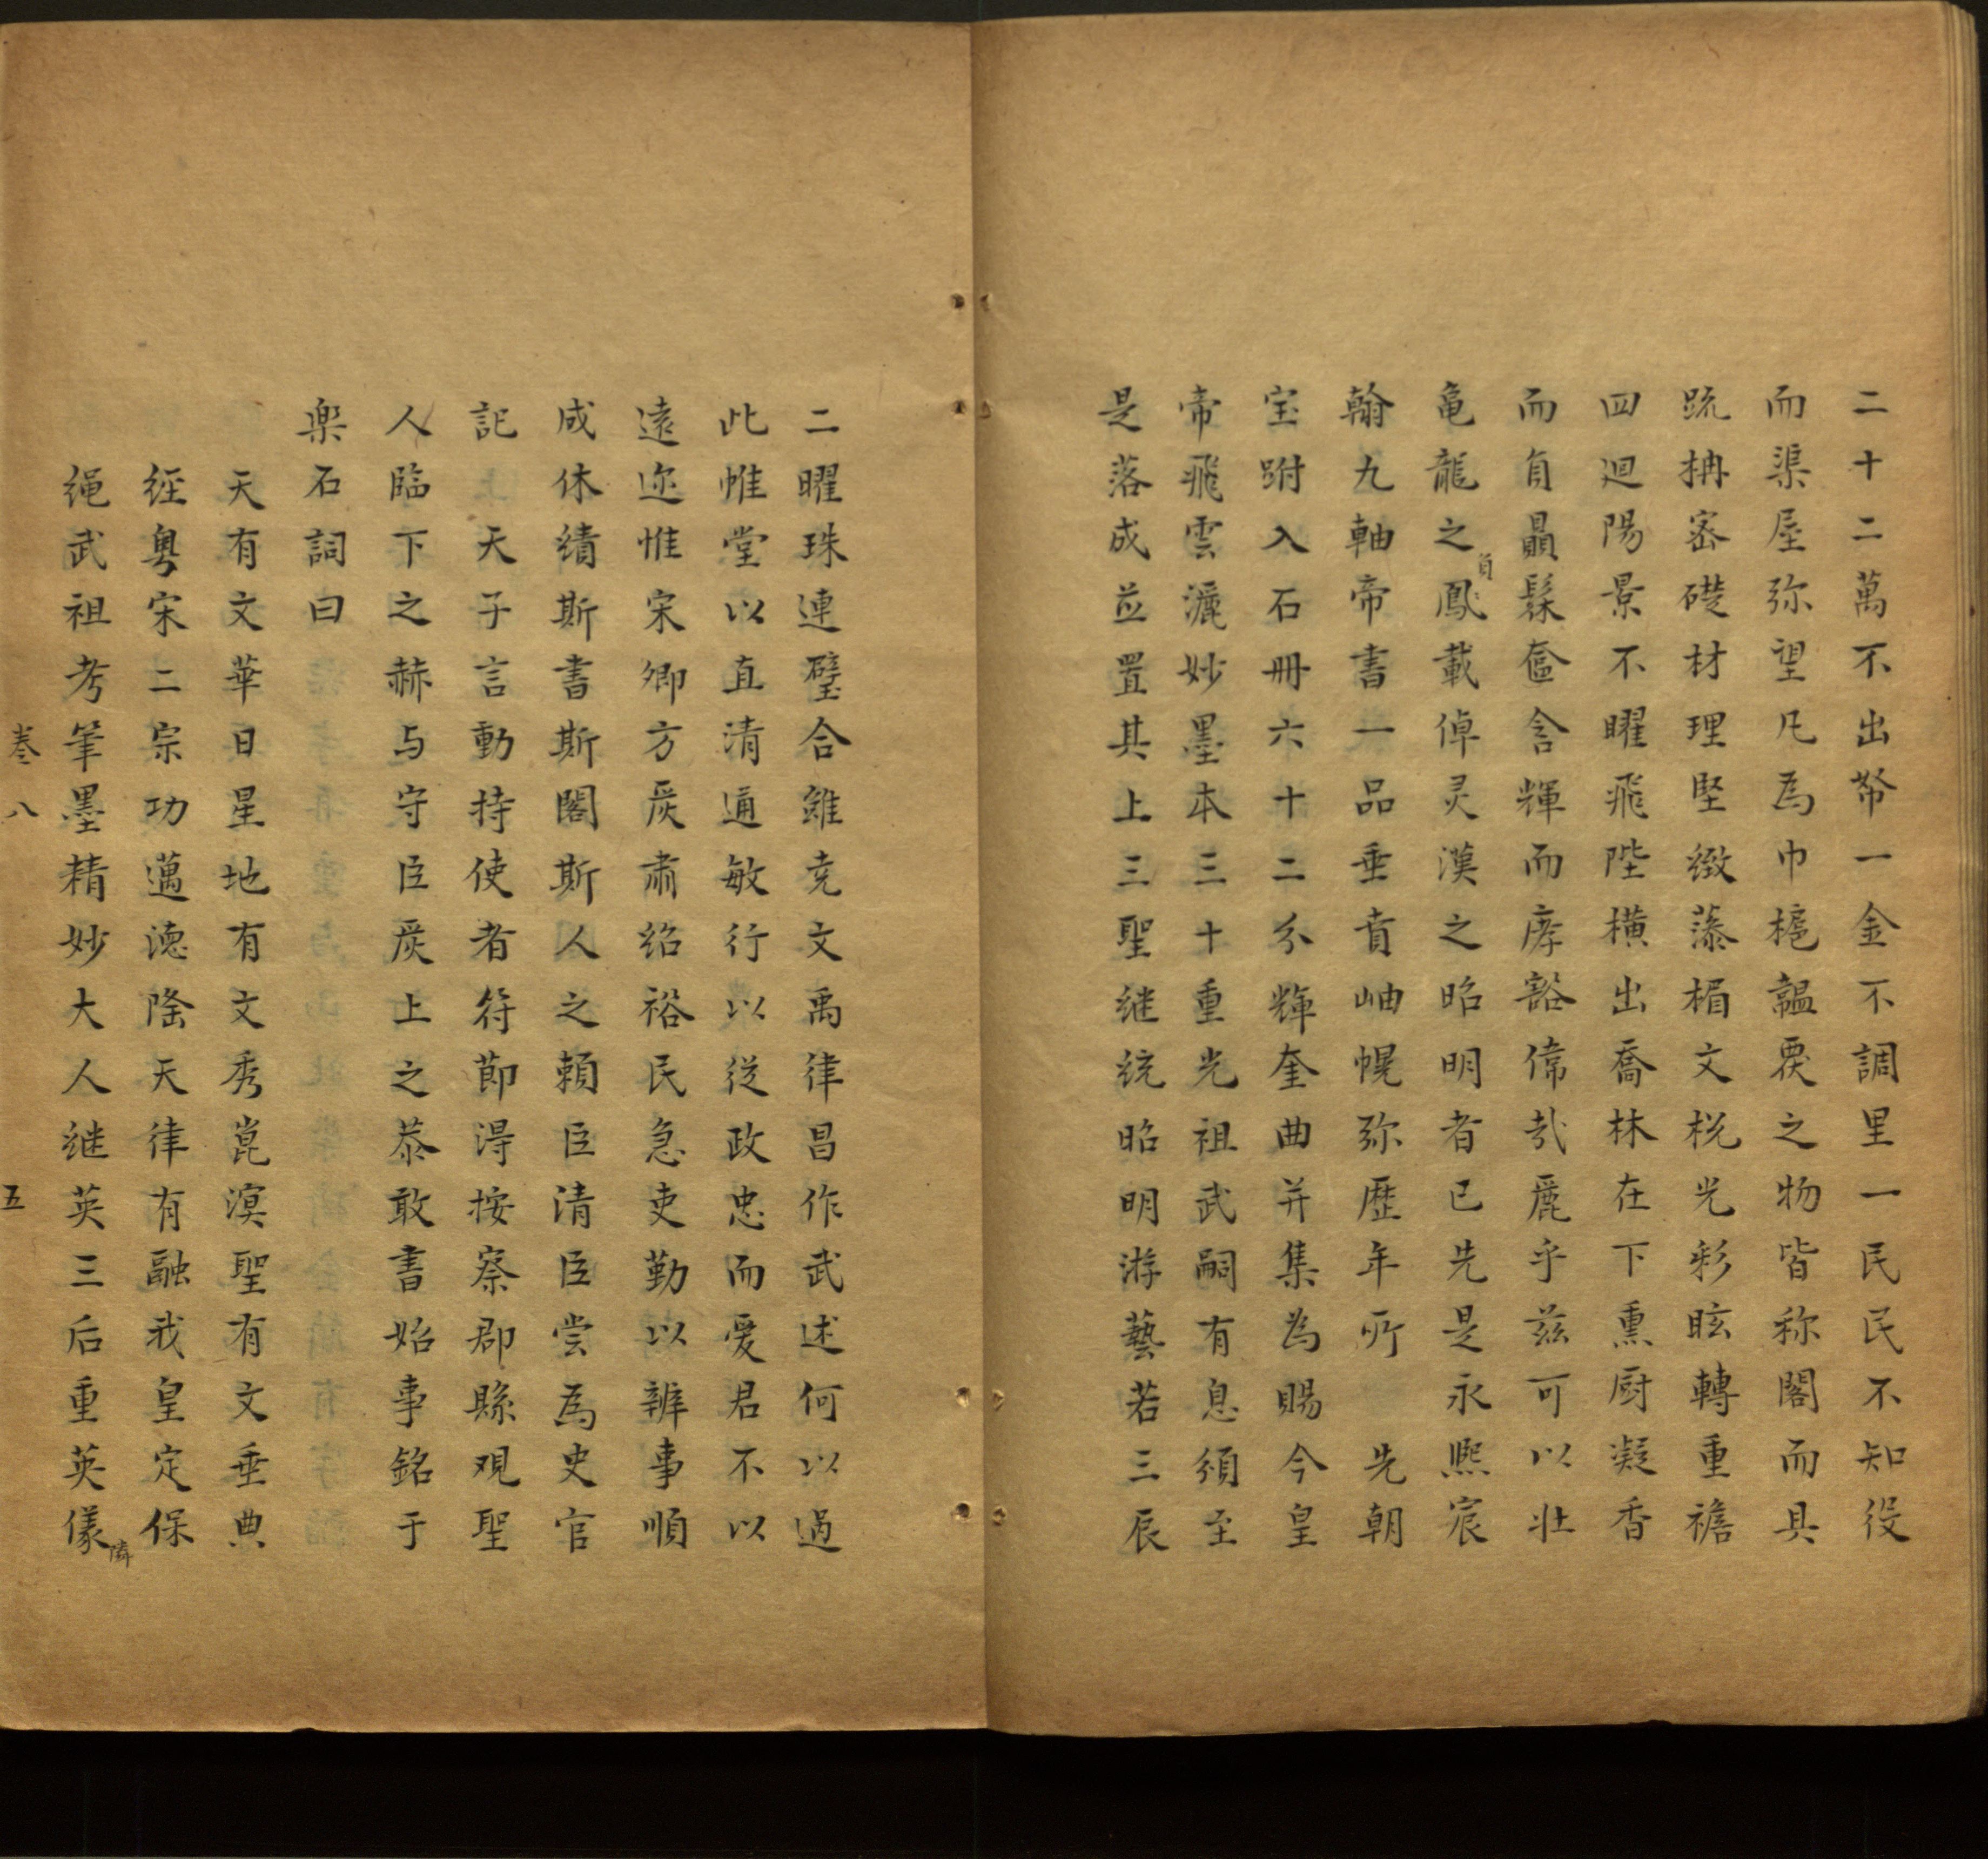 二十二萬不出帑一金不調里一民民不知役
而渠屋弥望凡為巾榥韞𠩄之物皆称閣而具
疏枏宻礎材理堅緻蔾楣文棁光彩眩轉重襜
四迴陽景不曜飛陛橫出喬林在下熏厨凝香
而負贔髹奩含輝而庨豁偉哉麗乎茲可以壯
亀龍之負鳳載倬灵漢之昭明者已先是永熙宸
翰九軸帝書一品垂賁岫幌弥歷年所　先朝
宝跗入石冊六十二分輝奎曲并集為賜今皇
帝飛雲灑妙墨本三十重光祖武嗣有息須至
是落成並置其上三聖継統昭明游藝若三辰
二曜珠連璧合雖尭文禹律昌作武述何以過
此惟堂以直清通敏行以従政忠而爱君不以
遠迩惟宋卿方矦肅紹裕民急吏勤以辦事順
咸休績斯書斯閣斯人之頼臣清臣尝為史官
記　天子言動持使者符節得按察郡縣观聖
人臨下之赫与守臣矦上之恭敢書始事銘于
楽石詞曰
天有文華日星地有文秀崑溟聖有文垂典
經粤宋二宗功邁徳隆天律有融我皇定保
绳武祖考筆墨精妙大人継英三后重英儀隣
卷八
五